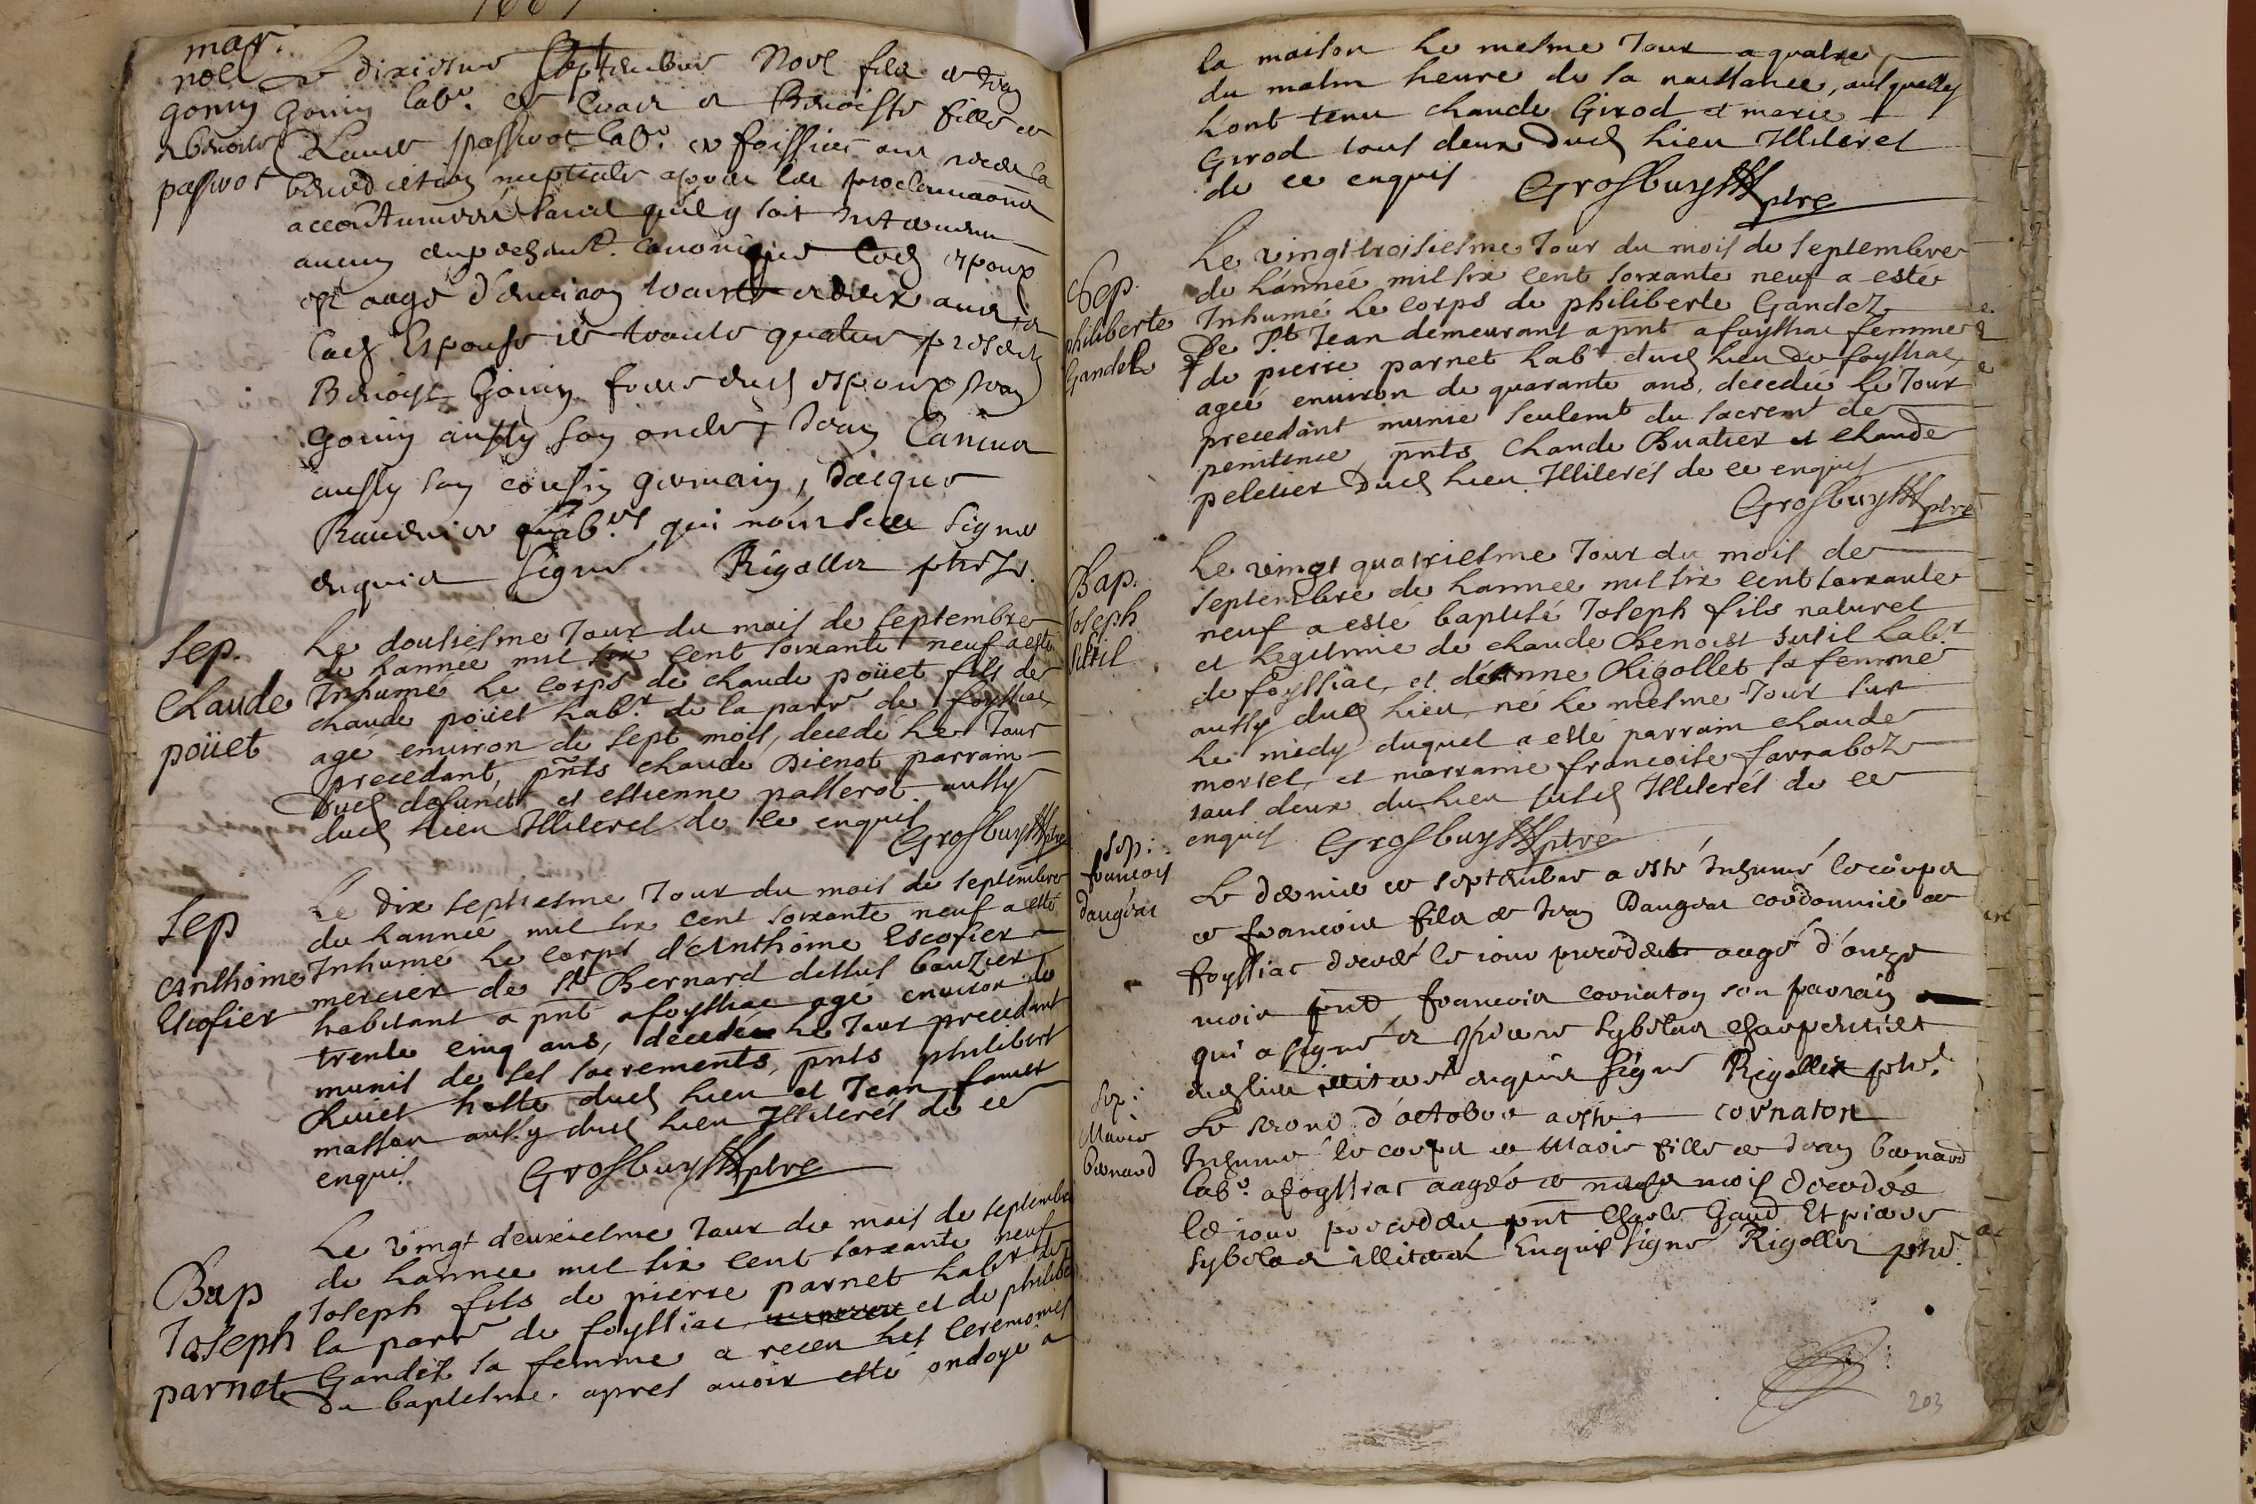 mar.
noel
gonin
& benoiste
passerot
Le dixiesme Septembre Noel fils de Jean
Gonin lab.r de Cuet et Benoiste fille de
Claude passerot lab.r de foissiat ont receu la
benediction nuptiale apres les proclamaons
accoustumees sans qu'il y soit Intervenu
aucun empeschent. canonique led espoux
est aagé d'environ trante et deux ans et
lad Espouse de trante quatre presents
Benoist Gonin frere dud espoux Jean
Gonin aussy son oncle, Jean
aussy son cousin germain, Jacques
lab.rs qui n'ont sceu signer
enquis Signé Rigollet pbre.
Sep.
Claude
poüet
Le dousiesme Jour du mois de septembre
de l'annee mil six cent soixante neuf a esté
Inhumé le corps de claude poüet fils de
claude poüet lab.r de la parr de foyssiac
agé environ de sept mois, decedé le Jour
precedant, pnts claude Dienot parrain
Dud defunct et estienne passerot aussy
dud lieu Illiteres de ce enquis
Grosbuys ptre
Sep
Anthoine
Escofier
Le dix septiesme Jour du mois de septembre
de l'année mil six cent soixante neuf a esté
Inhumé le corps d'Anthoine Escofier
mercier de St Bernard dessus
habitant a pnt a foyssiac agé environ de
trente cinq ans, decedé le Jour precedant
munis de ses sacrements, pnts philibert
Ruiet hoste dud lieu et Jean
masson aussy dud lieu Illiterés de ce
enquis.
Grosbuys ptre
Bap
Joseph
parnet
Le vingt deuxiesme Jour du mois de septembre
de l'annee mil six cent soixante neuf
Joseph fils de pierre parnet lab.r de
la parr de foyssiac et de philiberte
Gandez sa femme a receu les ceremonies
du baptesme. apres avoir esté ondoyé a
la maison le mesme Jour a quatre
du matin heure de sa naissance, ausquelles
l'ont tenu claude Girod et marie
Girod tous deux dud lieu Illiteres
de ce enquis Grosbuys ptre
Sep.
philiberte
Gandet
Le vingt troisiesme Jour du mois de septembre
de l'année mil six cent soixante neuf a esté
Inhumé le corps de philiberte Gandez
De St Jean demeurant a pnt a foyssiac femme
de pierre parnet lab.r dud lieu de foyssiac,
ageé environ de quarante ans, decedée le Jour
precedant munie seulemt du sacremt de
penitence, pnts claude Buatier et claude
peletier Dud lieu Illiterés de ce enquis
Grosbuys ptre
Bap.
Joseph
Sutil
Le vingt quatriesme Jour du mois de
septembre de l'annee mil six cent soixante
neuf a esté baptisé Joseph fils naturel
et legitime de claude Benoist sutil lab.r
de foyssiac, et d'Anne Rigollet sa femme
aussy dud lieu, né le mesme Jour sur
le midy duquel a esté parrain claude
mortel, et marraine francoise farraboz
tous deux du lieu susd Illiterés de ce
enquis Grosbuys ptre
sep:
francois
Daugirar
Le dernier de septembre a esté Inhumé le corps
de francois fils de Jean cordonnier de
foyssiac decedé le jour precedent aagé d'onze
mois pnt francois cornaton son parrain
qui a signé et pierre sybelas charpentier
dud lieu illiteré enquis signé Rigollet pbre.
cornaton
Sep:
Marie
bernard
Le second d'octobre a esté
Inhumé le corps de Marie fille de Jean bernard
lab.r a foyssiac aagée de mois decedée
le jour precedent pnt Et pierre
sybelas illiteres Enquis signé Rigollet pbre.
203